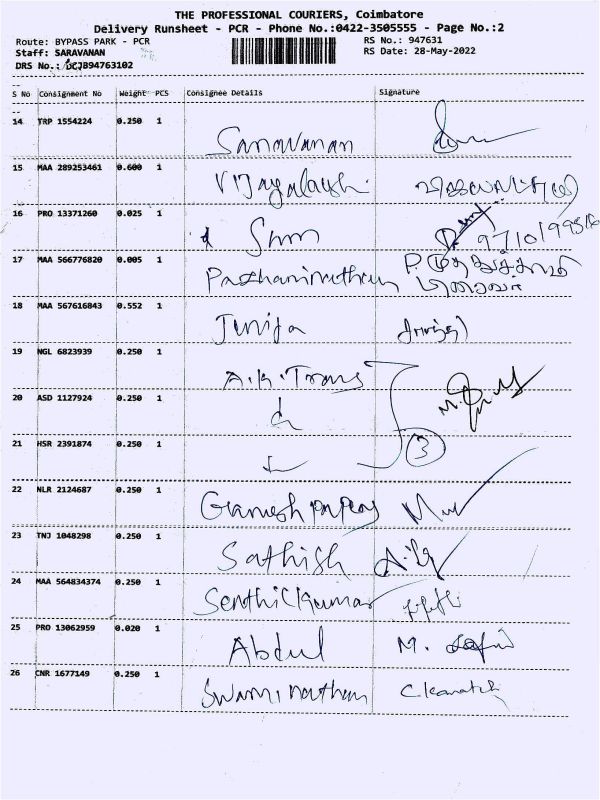 THE PROFESSIONAL COURIERS, Coimbatore
Delivery Runsheet - PCR - Phone No.:0422-3505555 - Page No.:2
Route: BYPASS PARK - PCR
RS No.: 947631
Staff: SARAVANAN
RS Date: 28-May-2022
DRS No.: DCJ894763102
S No Consignment No Weight PCS Consignee Details Signature
14 TRP 1554224 0.250 1 Saravanan
15 MAA 289253461 0.600 1 Vijayalaksh
16 PRO 13371260 0.025 1
17 MAA 566776820 0.005 1
18 MAA 567616843 0.552 1
19 NGL 6823939 0.250 1 A.K.Trans
20 ASD 1127924 0.250 1
21 HSR 2391874 0.250 1 3
22 NLR 2124687 0.250 1 Ganesh
23 TNJ 1048298 0.250 1 Sathish
24 MAA 564834374 0.250 1 Senthilkumar
25 PRO 13062959 0.020 1 Abdul M.
26 CNR 1677149 0.250 1 Swaminathan